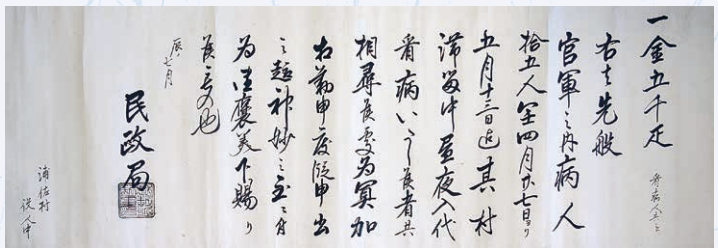 一金五千疋
看病人
右者先般
官軍之内病人
拾五人閏四月廿七日ゟ
五月十三日迄其村
滞留中昼夜入代
看病いたし候者共
相尋候処為冥加
相勤申度段申出
之趣神妙之至ニ付
為御褒美下賜り
候もの也
辰七月
民政局
浦佐村
役人中